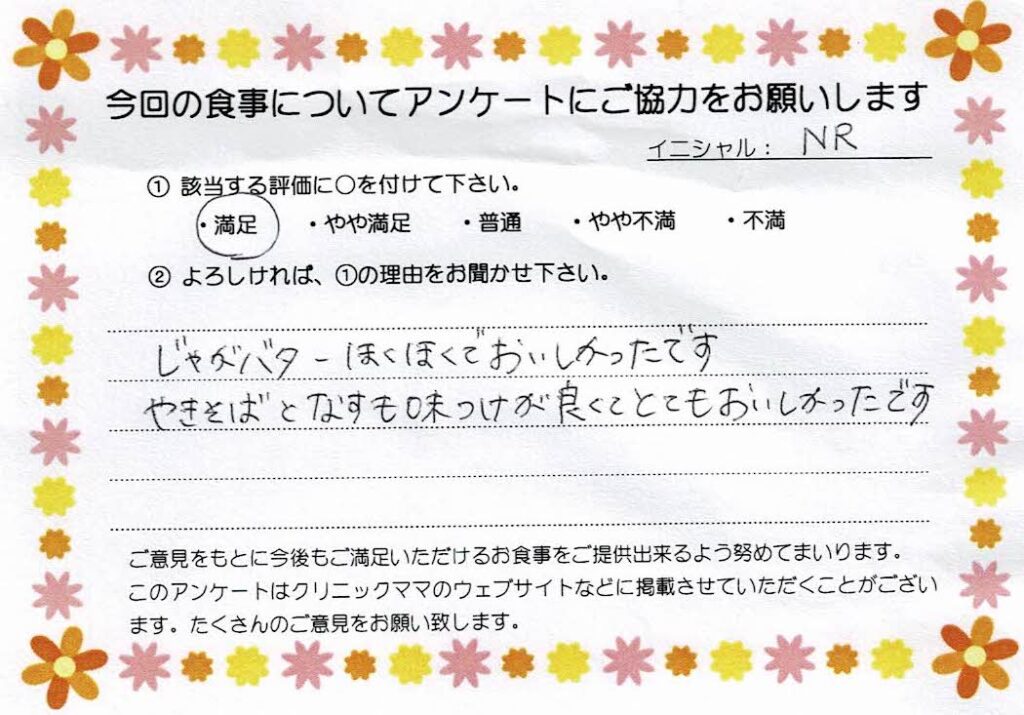 今回の食事についてアンケートにご協力をお願いします
イニシャル： NR
① 該当する評価に○を付けて下さい。
・満足 ・やや満足 ・普通 ・やや不満 ・不満
② よろしければ、①の理由をお聞かせ下さい。
じゃがバターほくほくでおいしかったです
やきそばとなすも味つけが良くてとてもおいしかったです
ご意見をもとに今後もご満足いただけるお食事をご提供出来るよう努めてまいります。
このアンケートはクリニックママのウェブサイトなどに掲載させていただくことがござい
ます。たくさんのご意見をお願い致します。